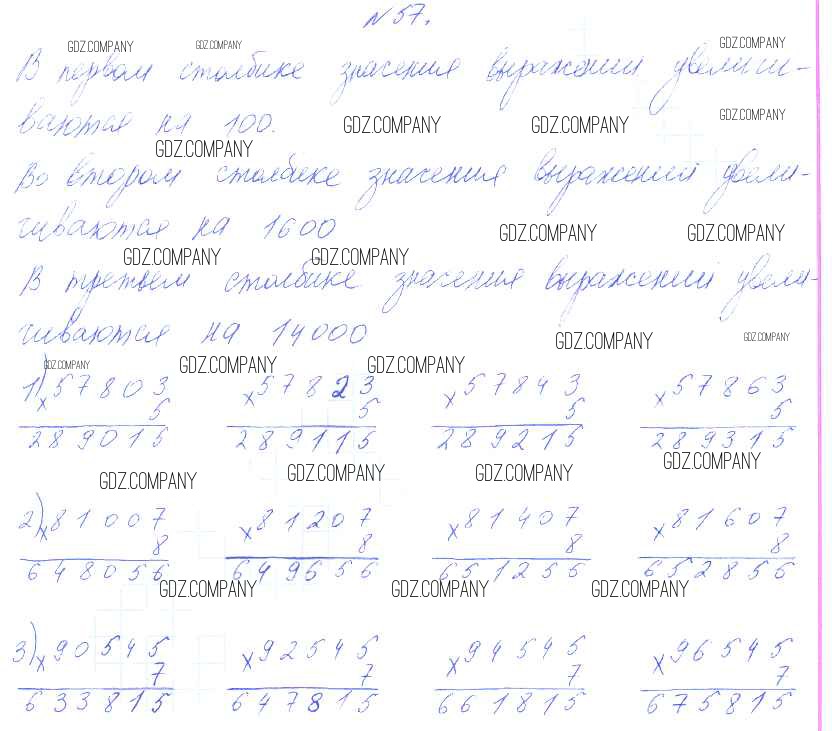 N 57.
В первом столбике значения выражений увеличи-
ваются на 100.
Во втором столбике значения выражений увели-
чиваются на 1600
В третьем столбике значения выражений увели-
чиваются на 14000
1) × 57803 × 57823 × 57843 × 57863
5 5 5 5
289015 289115 289215 289315
2) × 81007 × 81207 × 81407 × 81607
8 8 8 8
648056 649656 651256 652856
3) × 90545 × 92545 × 94545 × 96545
7 7 7 7
633815 647815 661815 675815
GDZ.COMPANY GDZ.COMPANY GDZ.COMPANY
GDZ.COMPANY GDZ.COMPANY GDZ.COMPANY
GDZ.COMPANY
GDZ.COMPANY GDZ.COMPANY
GDZ.COMPANY GDZ.COMPANY
GDZ.COMPANY GDZ.COMPANY
GDZ.COMPANY GDZ.COMPANY GDZ.COMPANY
GDZ.COMPANY GDZ.COMPANY GDZ.COMPANY GDZ.COMPANY
GDZ.COMPANY GDZ.COMPANY GDZ.COMPANY